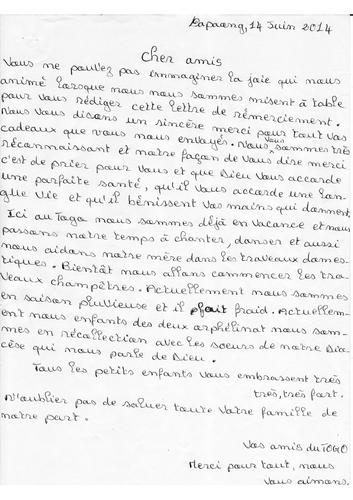 Papaang, 14 Juin 2014
Cher amis
Vous ne pouvez pas immaginer la joie qui nous
animé lorsque nous nous sommes misent à table
pour vous rédiger cette lettre de rémerciement.
Nous vous disons un sincère merci pour tout vos
cadeaux que vous nous envoyés. Nous vous sommes très
réconnaissant et notre façon de vous dire merci
c'est de prier pour vous et que Dieu vous accorde
une parfaite santé, qu'il vous accorde une lon-
gue vie et qu'il bénissent vos mains qui donnent.
Ici au Togo nous sommes déjà en vacance et nous
passons notre temps à chanter, danser et aussi
nous aidons notre mère dans les travaux domes-
tiques. Bientôt nous allons commencer les tra-
veaux champêtres. Actuellement nous sommes
en saison pluvieuse et il fait fraid. Actuellem-
ent nous enfants des deux orphélinat nous som-
mes en récollection avec les soeurs de notre Dio-
cèse qui nous parle de Dieu.
Tous les petits enfants vous embrassent très
très, très fort.
N'oublier pas de saluer toute votre famille de
notre part.
Vos amis du TOGO
Merci pour tout, nous
vous aimons.